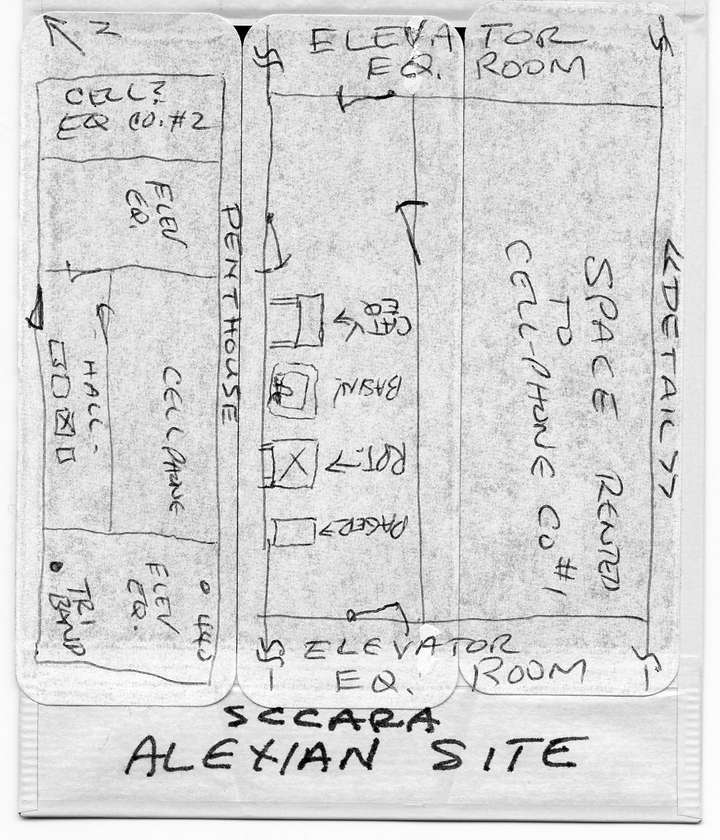 N
CELL?
EQ CO. #2
ELEV
EQ.
PENTHOUSE
HALL
CELLPHONE
TRI
BAND
ELEV
EQ.
440
ELEVATOR
EQ. ROOM
CAT
EQ
BASIN
RPT.
PAGER
SPACE RENTED
TO
CELL-PHONE CO #1
<<DETAIL>>
ELEVATOR
EQ. ROOM
SCCARA
ALEXIAN SITE